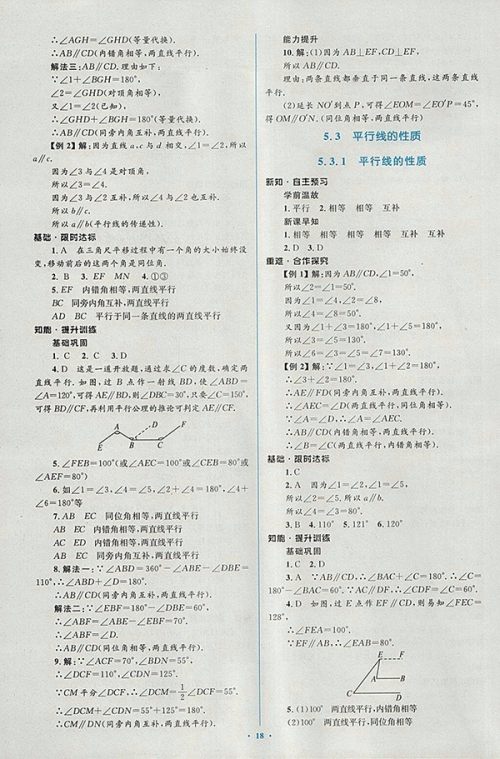 ∴∠AGH=∠GHD(等量代换).
∴AB∥CD(内错角相等,两直线平行).
解法三:AB∥CD. 理由如下:
∵∠1+∠BGH=180°,
∠2=∠GHD(对顶角相等),
又∠1=∠2(已知),
∴∠GHD+∠BGH=180°(等量代换).
∴AB∥CD(同旁内角互补,两直线平行).
【例2】解:因为直线a,c与d相交,∠1=∠2,所以
a∥c.
因为∠3与∠4是对顶角,
所以∠3=∠4.
因为∠3与∠2互补,所以∠4与∠2也互补.
所以b∥c.
所以a∥b(平行线的传递性).
基础·限时达标
1.A 在三角尺平移过程中有一个角的大小始终没
变,移动前后的这两个角是同位角.
2.B 3.EF MN 4.①③
5.EF 内错角相等,两直线平行
BC 同旁内角互补,两直线平行
AD BC 平行于同一条直线的两直线平行
知能·提升训练
基础巩固
1.C 2.C 3.D
4.D 这是一道开放题,通过求∠C的度数,确定两
直线平行. 如图,过B点作一射线BD,使∠ABD=
∠A=120°,可得AE∥BD,则∠DBC=30°.只要∠C=150°,
可得BD∥CF,再利用平行公理的推论可判定AE∥CF.
A D F
E B C
5.∠FEB=100°(或∠AEC=100°或∠CEB=80°或
∠AEF=80°)
6.如∠1=∠3,∠4=∠5,∠2+∠4=180°,∠4+
∠6=180°等
7.AB EC 同位角相等,两直线平行
AB EC 内错角相等,两直线平行
AC ED 内错角相等,两直线平行
AB EC 同旁内角互补,两直线平行
8.解法一:∵∠ABD=360°-∠ABE-∠DBE=
110°,∴∠ABD+∠D=180°.
∴AB∥CD(同旁内角互补,两直线平行).
解法二:∵∠EBF=180°-∠DBE=60°,
∴∠ABF=∠ABE-∠EBF=70°.
∴∠ABF=∠D.
∴AB∥CD(同位角相等,两直线平行).
9.解:∵∠ACF=70°,∠BDN=55°,
∴∠DCF=110°,∠CDN=125°.
∵CM平分∠DCF,∴∠DCM=1/2∠DCF=55°.
∴∠DCM+∠CDN=55°+125°=180°.
∴CM∥DN(同旁内角互补,两直线平行).
能力提升
10.解:(1)因为AB⊥EF,CD⊥EF,
所以AB∥CD.
理由:两条直线都垂直于同一条直线,这两条直线
平行.
(2)延长NO′到点P,可得∠EOM=∠EO′P=45°,
得OM∥O′N.(同位角相等,两直线平行)
5.3 平行线的性质
5.3.1 平行线的性质
新知·自主预习
学前温故
1.平行 2.相等 相等 互补
新课早知
1.相等 相等 互补 相等 相等 互补
2.D 3.D
重难·合作探究
【例1】解:因为AB∥CD,∠1=50°,
所以∠2=∠1=50°.
因为∠1=∠4,∠2=∠8,
所以∠4=∠8=50°.
又因为∠1+∠3=180°,∠1+∠5=180°,
所以∠3=∠5=130°.
所以∠6=∠3=∠5=∠7=130°.
【例2】解:∵∠1=∠3,∠1+∠2=180°,
∴∠3+∠2=180°.
∴AE∥FD(同旁内角互补,两直线平行).
∴∠AEC=∠D(两直线平行,同位角相等).
∵∠A=∠D,∴∠A=∠AEC.
∴AB∥CD(内错角相等,两直线平行).
∴∠B=∠C(两直线平行,内错角相等).
基础·限时达标
1.C
2.A 因为∠1=∠2,∠1=∠5,
所以∠2=∠5. 所以a∥b.
所以∠4=∠3=80°.
3.B 4.110° 5.121° 6.120°
知能·提升训练
基础巩固
1.A ∵AB∥CD,∴∠BAC+∠C=180°.∴∠C=
180°-∠BAC=60°. ∵AC∥DF,∴∠CDF=∠C=60°.
2.C 3.D
4.D 如图,过E点作EF∥CD,则易知∠FEC=
128°.
∴∠FEA=100°.
∵EF∥AB,∴∠A=80°.
E F
A B
C D
5.(1)100° 两直线平行,内错角相等
(2)100° 两直线平行,同位角相等
· 18 ·